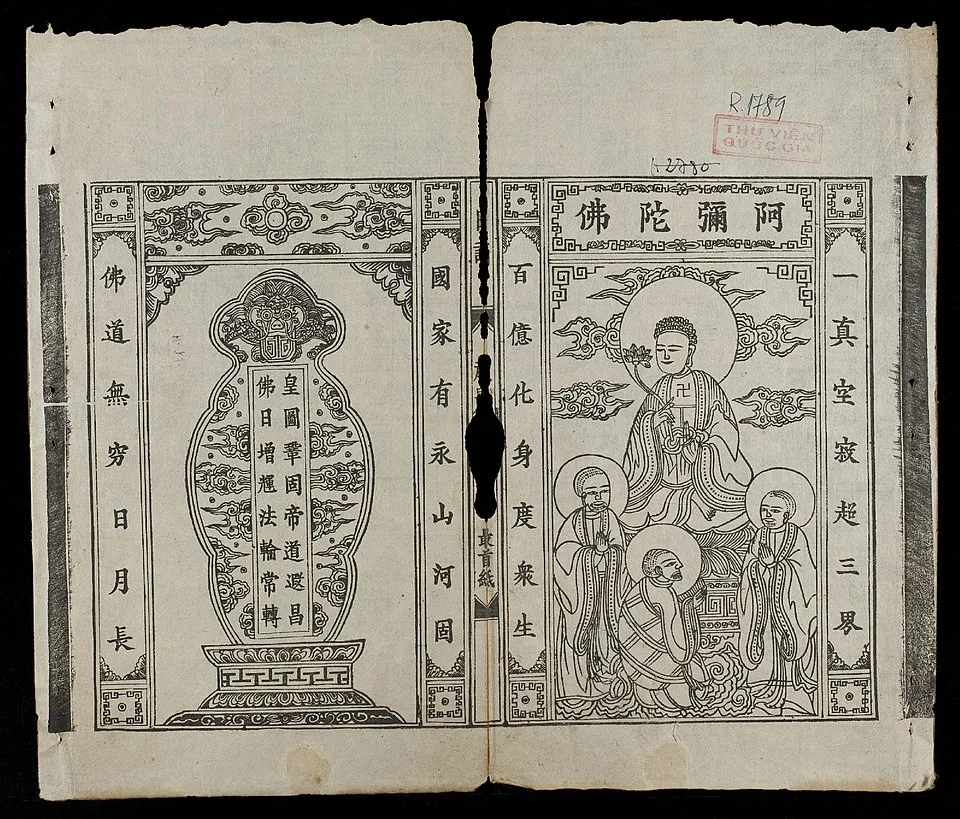 R.1789
THƯ VIỆN
QUỐC GIA
阿彌陀佛
一真空寂超三界
百億化身度衆生
國家有永山河固
皇圖鞏固帝道遐昌
佛日增輝法輪常轉
佛道無穷日月長